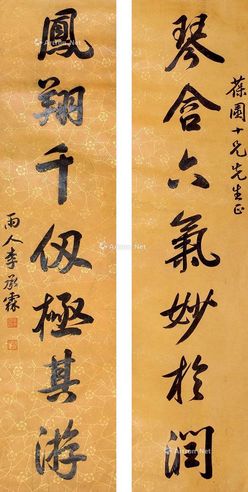 葆圃十兄先生正
琴含六氣妙於潤
鳳翔千仞極其游
雨人李承霖